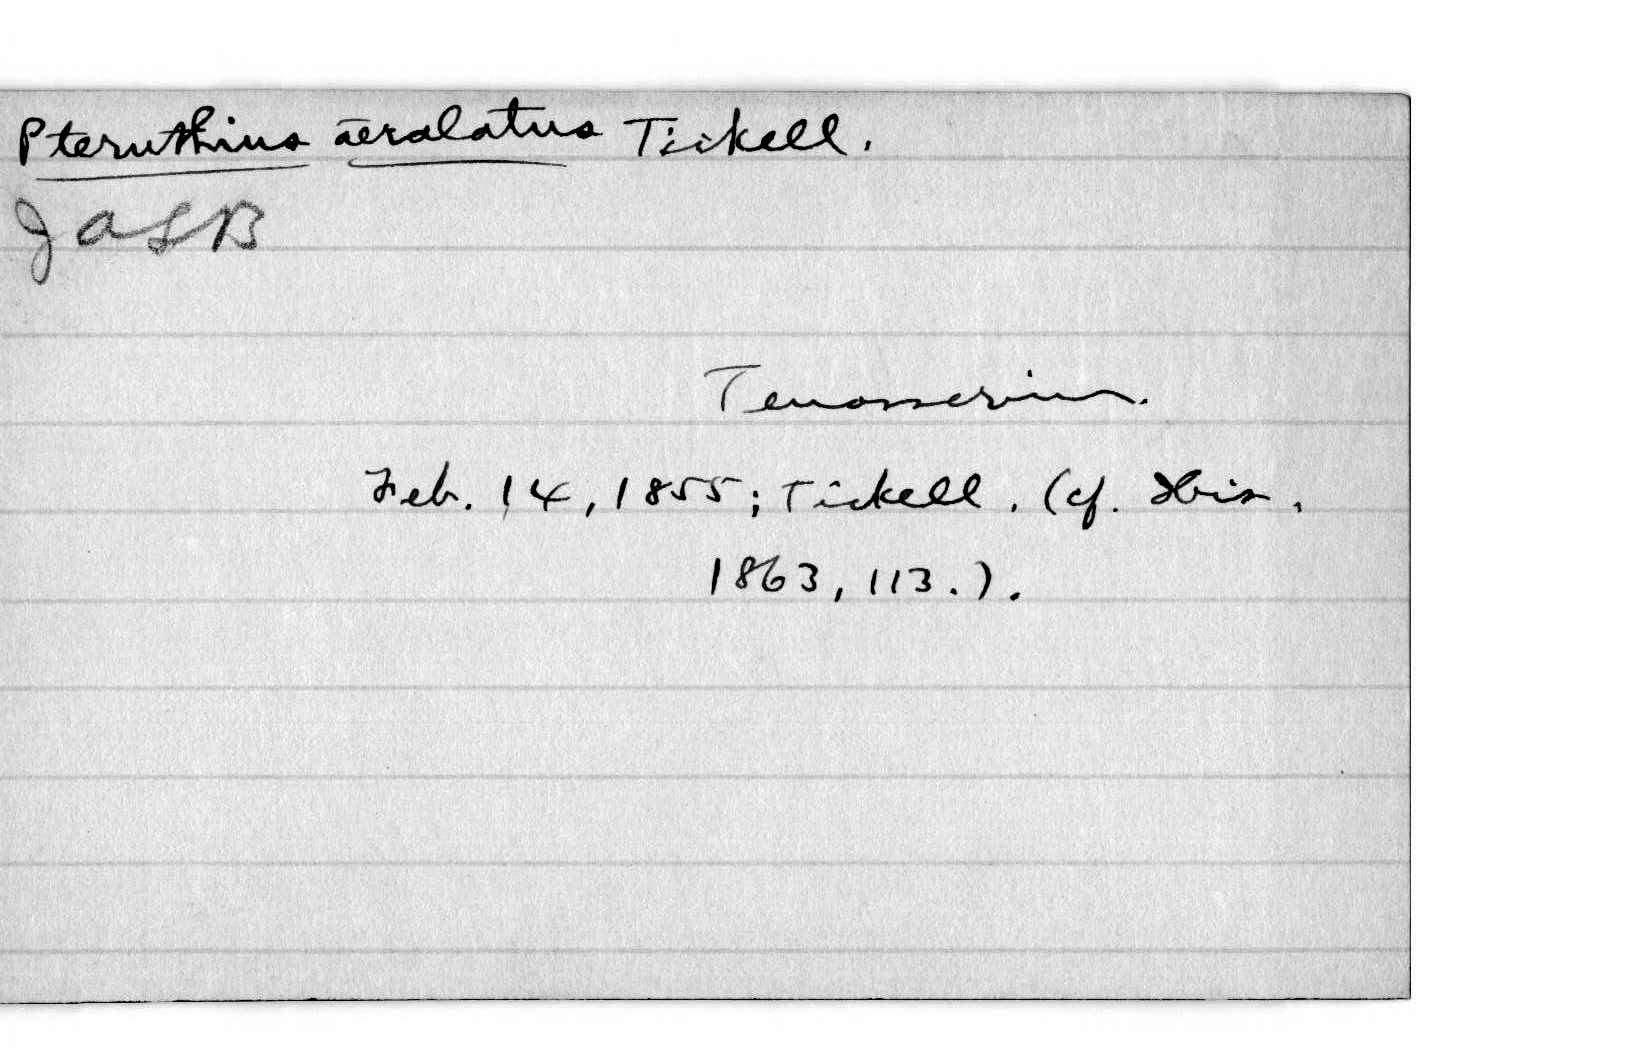 Pteruthius aeralatus Tickell.
JASB
Tenasserim.
Feb. 14, 1855; Tickell. (cf. Ibis.
1863, 113.).